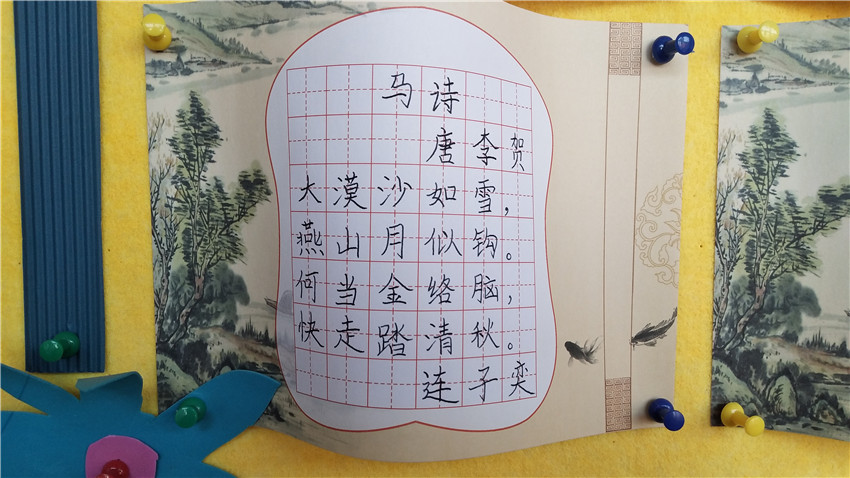 马诗
唐李贺
大漠沙如雪，
燕山月似钩。
何当金络脑，
快走踏清秋。
连子奕